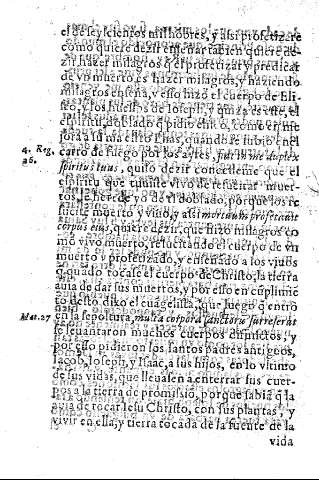 el de seyscientos mil hōbres, y assi profetizare
como quiere dezir enseñar tambien quiere de-
zir hazer milagros q̄ el profetizar y predicar
de vn muerto es hazer milagros, y haziendo
milagros enseña, y esso hizo el cuerpo de Eli-
seo, y los huesos de Ioseph, y quiza es este, el
espiritu doblado q̄ pidio
jor a su maestro Elias, quando se subio en el
4. Reg. carro de fuego por los ayres, fiat in me duplex
26. spiritus tuus, quiso dezir concedeme que el
espiritu que tuuiste viuo de resucitar muer-
tos, le herede yo doblado, porque los re
sucite muerto y viuo, y assi mortuum prophetauit
corpus eius, quiere dezir, que hizo milagros co
mo viuo muerto, resucitando el cuerpo de vn
muerto y profetizado, y enseñado a los viuos
q̄ quādo tocase el cuerpo de Christo, la tierra
auia de dar sus muertos, y por esso en cūplimiē
to desto, dixo el euāgelista, que luego q̄ entrò
Mat. 27 en la sepoltura, multa corpora sanctorū surrexerūt
se leuantaron muchos cuerpos difunctos, y
por esso pidieron los santos padres antiguos,
Iacob, Ioseph, y Isaac, a sus hijos, en lo vltimo
de sus vidas, que lleuasen a enterrar sus cuer-
pos a la tierra de promissiō, porque sabiā q̄ la
auia de tocar Iesu Christo, con sus plantas, y
viuir en ella, y tierra tocada de la fuente de la
vida